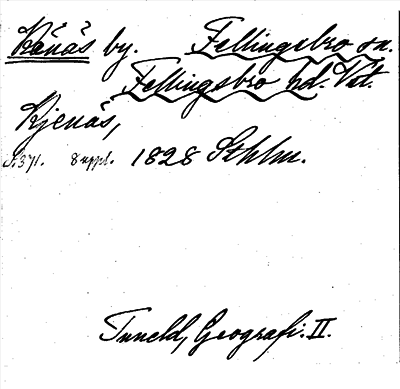 Känäs by. Fellingsbro sn.
Fellingsbro hd. Vstm.
Kjenäs,
S. 371. 8 uppl. 1828 Sthlm.
Tuneld, Geografi. II.